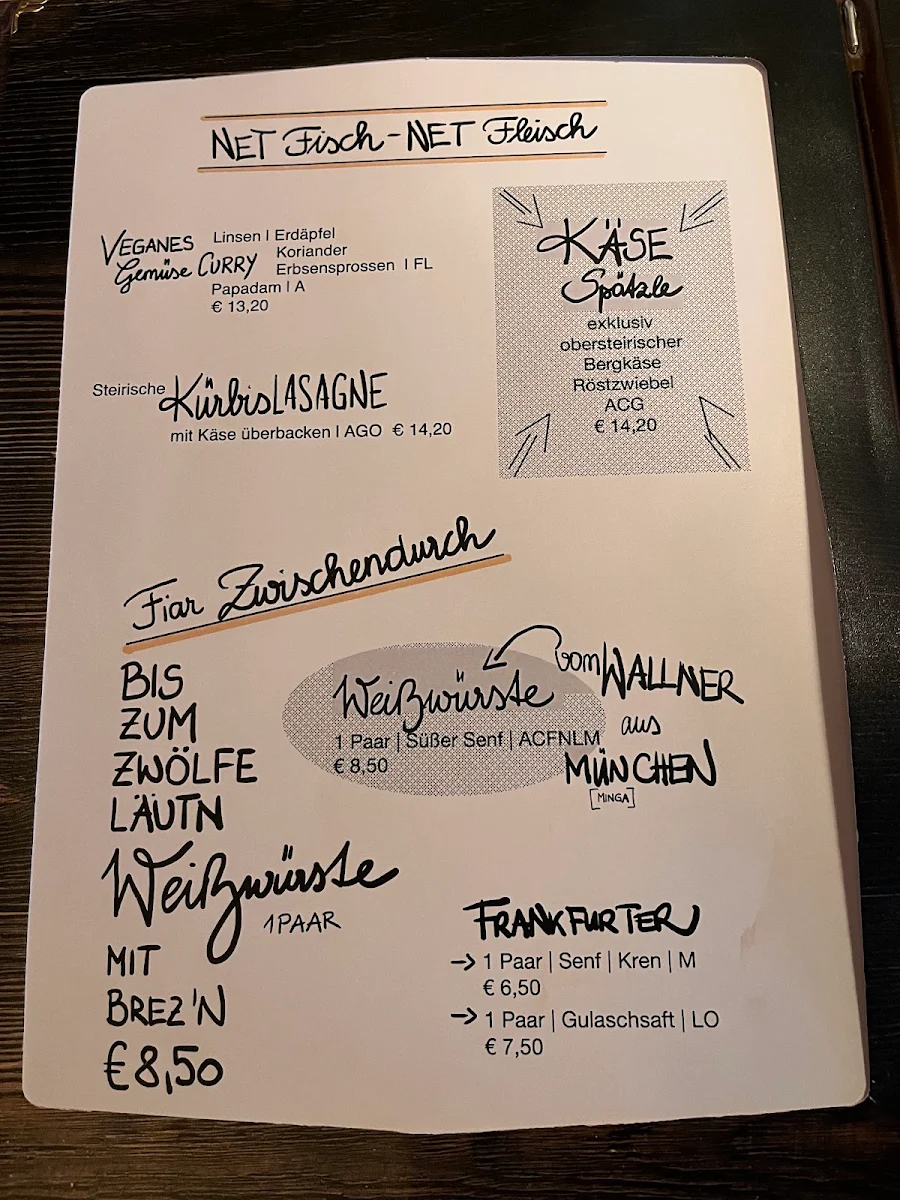 NET Fisch-NET Fleisch
VEGANES Gemüse CURRY
Linsen I Erdäpfel
Koriander
Erbsensprossen I FL
Papadam I A
€ 13,20
Steirische KürbisLASAGNE
mit Käse überbacken I AGO € 14,20
KÄSE
Spätzle
exklusiv
obersteirischer
Bergkäse
Röstzwiebel
ACG
€ 14,20
Fiar Zwischendurch
BIS
ZUM
ZWÖLFE
LÄUTN
Weißwürste
1 PAAR
MIT
BREZ'N
€8,50
Weißwürste
1 Paar | Süßer Senf | ACFNLM
€ 8,50
vom WALLNER
aus
MÜNCHEN
[MINGA]
FRANKFURTER
→ 1 Paar | Senf | Kren | M
€ 6,50
→ 1 Paar | Gulaschsaft | LO
€ 7,50